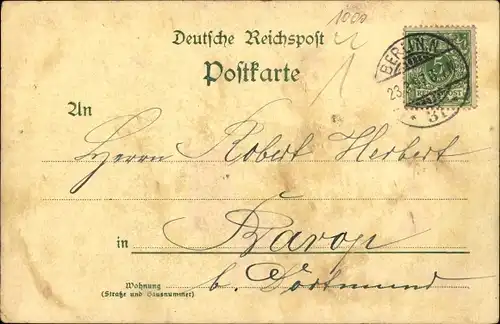 1000
Deutsche Reichspost
Postkarte
BERLIN.N.
REICHSPOST
An
Herrn Robert Herbert
in Barop
b. Dortmund
Wohnung
(Straße und Hausnummer)